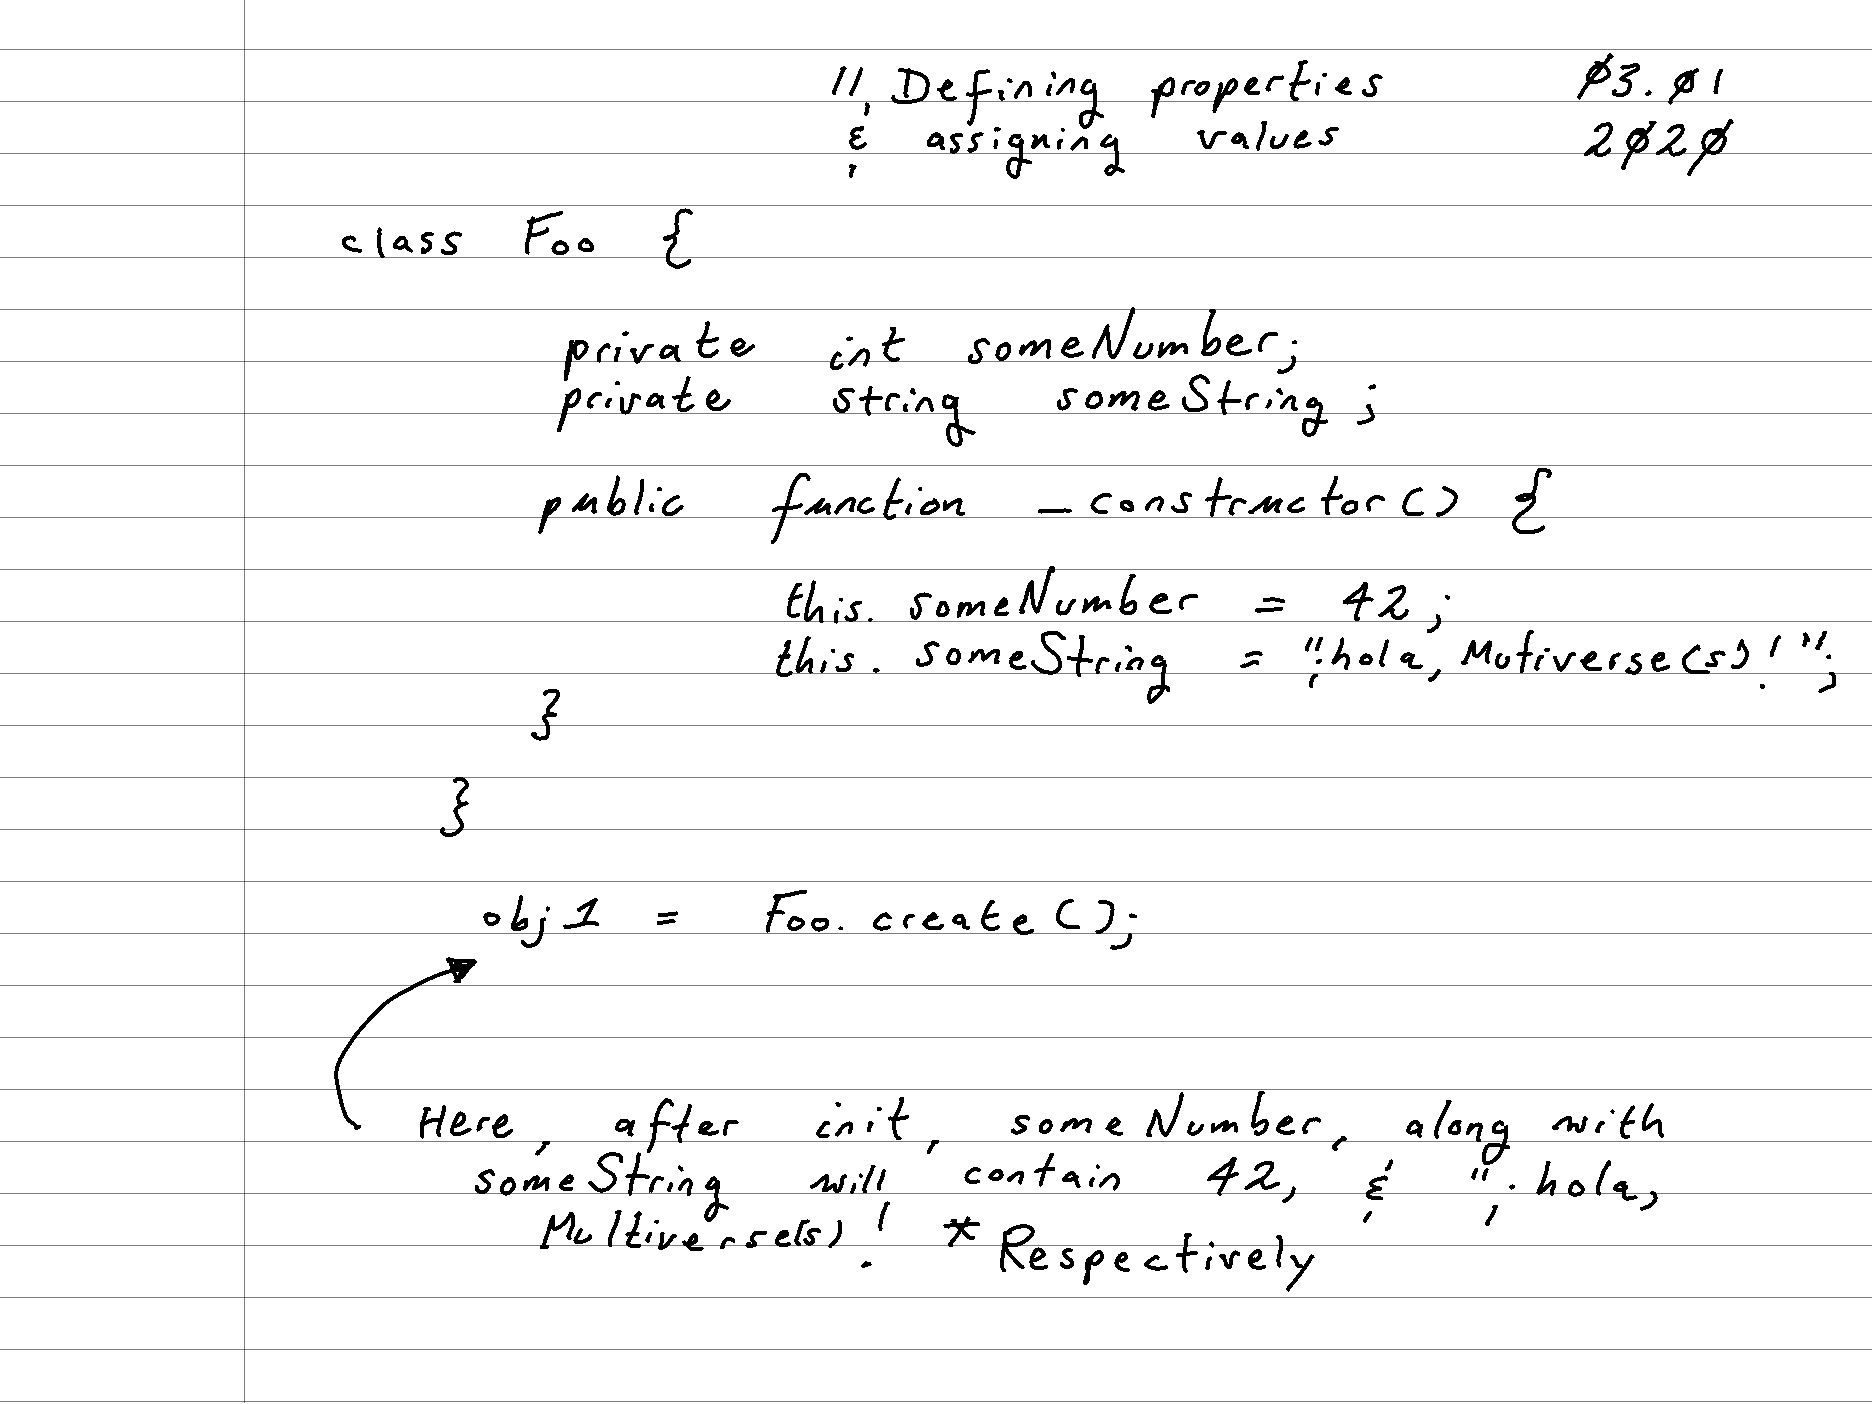 // Defining properties 03.01
& assigning values 2020
class Foo {
private int someNumber;
private string someString;
public function _constructor() {
this.someNumber = 42;
this.someString = "¡hola, Mutiverse(s)!";
}
}
obj1 = Foo.create();
Here, after init, someNumber, along with
someString will contain 42, & "¡hola,
Multiverse(s)! * Respectively